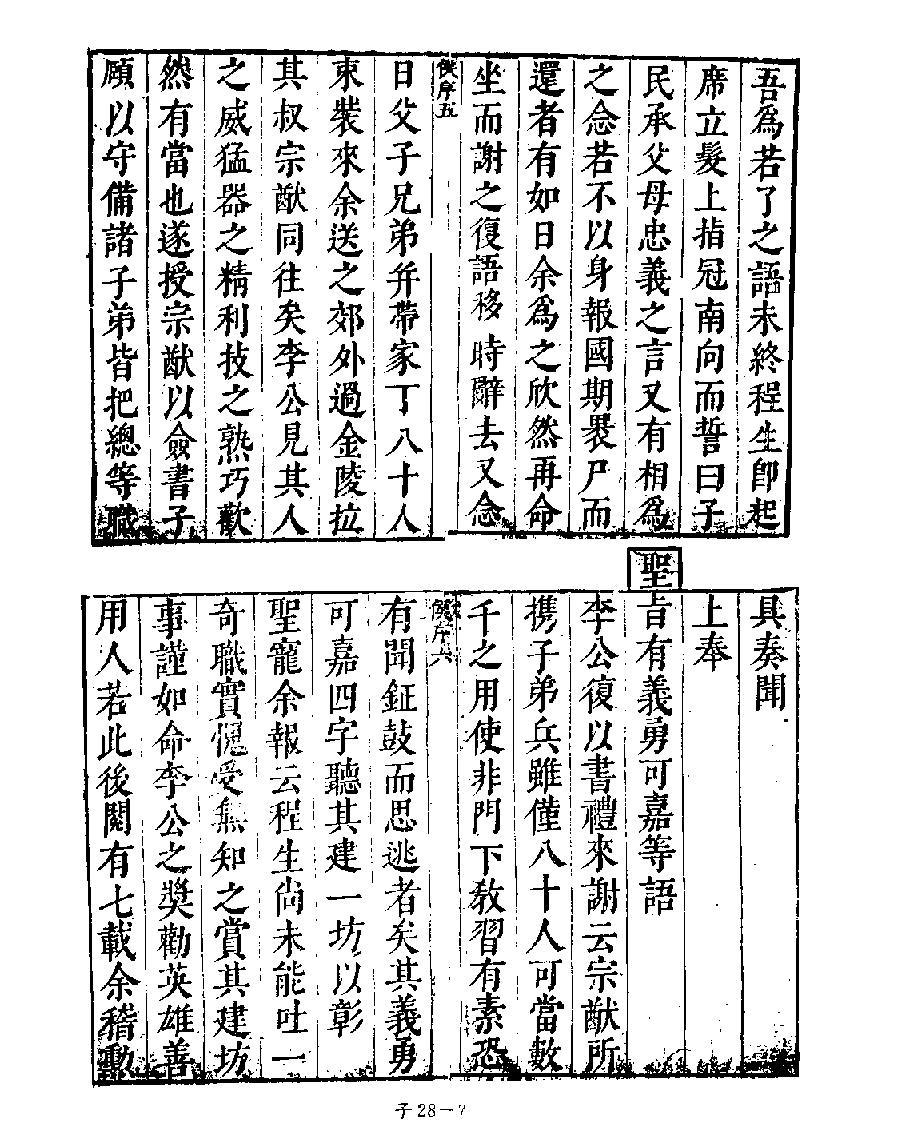 吾爲若了之語未終程生卽起
席立髮上指冠南向而誓曰子
民承父母忠義之言又有相爲
之念若不以身報國期裹尸而
還者有如日余爲之欣然再命
坐而謝之復語移時辭去又念
侯序五
日父子兄弟幷帶家丁八十人
束裝來余送之郊外過金陵拉
其叔宗猷同往矣李公見其人
之威猛器之精利技之熟巧歡
然有當也遂授宗猷以僉書子
顧以守備諸子弟皆把總等職
具奏聞
上奉
聖旨有義勇可嘉等語
李公復以書禮來謝云宗猷所
携子弟兵雖僅八十人可當數
千之用使非門下敎習有素恐
侯序六
有聞鉦鼓而思逃者矣其義勇
可嘉四字聽其建一坊以彰
聖寵余報云程生尚未能吐一
奇職實愧受無知之賞其建坊
事謹如命李公之奬勸英雄善
用人若此後閱有七載余稽勳
子28—7